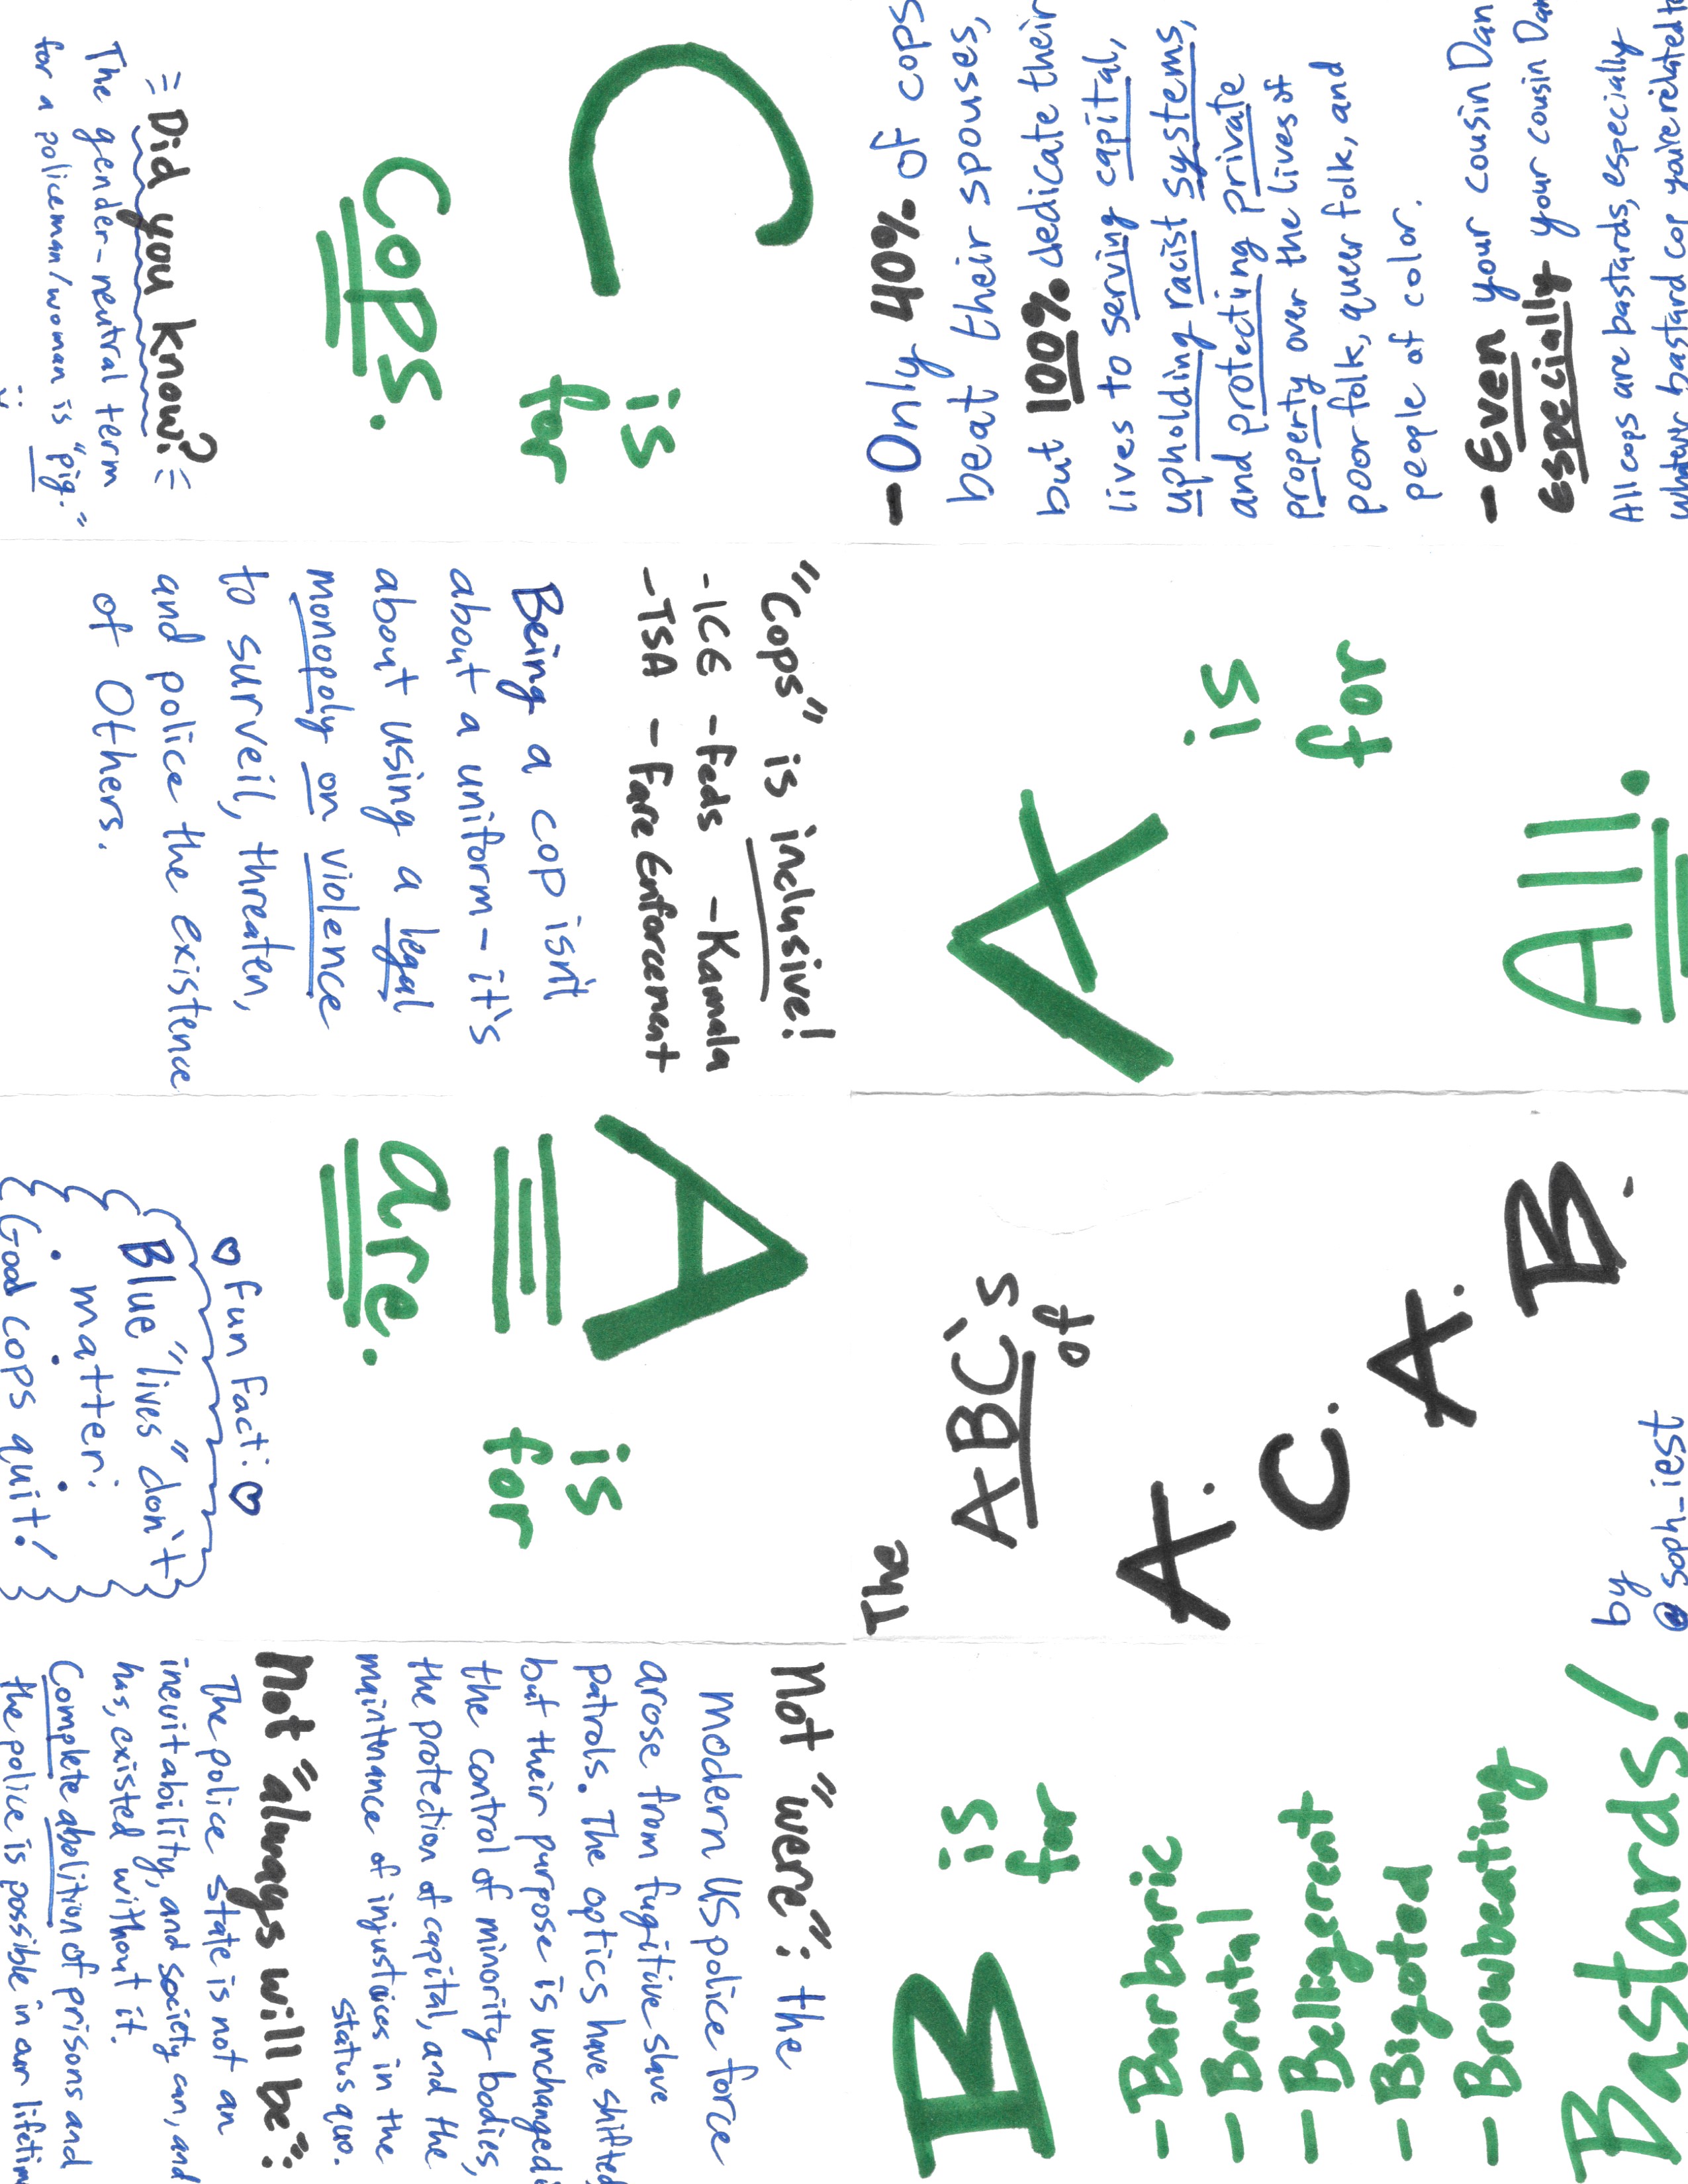 The
ABC's
of
A.
C.
A.
B.
by
@soph_iest
A
is
for
All.
- Only 40% of cops
beat their spouses,
but 100% dedicate their
lives to serving capital,
upholding racist systems,
and protecting private
property over the lives of
poor folk, queer folk, and
people of color.
- Even your cousin Dan
especially your cousin Dan
All cops are bastards, especially
bastard cop you're related
C
is
for
Cops.
= Did you know? =
The gender-neutral term
for a policeman/woman is "pig."
:)
"Cops" is inclusive!
-ICE -Feds -Kamala
-TSA - Fare Enforcement
Being a cop isn't
about a uniform - it's
about using a legal
monopoly on violence
to surveil, threaten,
and police the existence
of Others.
A
is
for
are.
♡ fun fact: ♡
Blue "lives" don't
matter.
Good cops quit!
Not "were": the
modern US police force
arose from fugitive slave
patrols. The optics have shifted
but their purpose is unchanged:
the control of minority bodies,
the protection of capital, and the
maintnance of injustices in the
status quo.
Not "always will be":
The police state is not an
inevitability, and society can, and
has, existed without it.
Complete abolition of prisons and
the police is possible in our lifetim
B
is
for
- Barbaric
- Brutal
- Belligereat
- Bigoted
- Browbeating
Bastards!